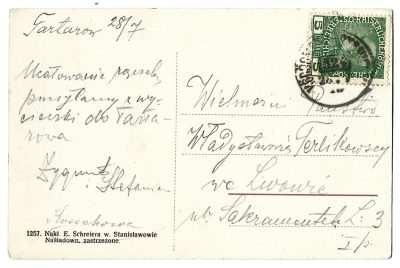 Tartarow 28/7
Ucałowanie rączek
przesyłamy z wy-
cieczki do Tarta-
rowa
Zygmunt
i Stefania
Kossakowa
1257. Nakł. E. Schreiera w. Stanisławowie
Naśladown. zastrzeżone.
5
Wielmożni
Państwo
Władysławowie Terlikowscy
we Lwowie
ul. Sakramentek L: 3
I p.